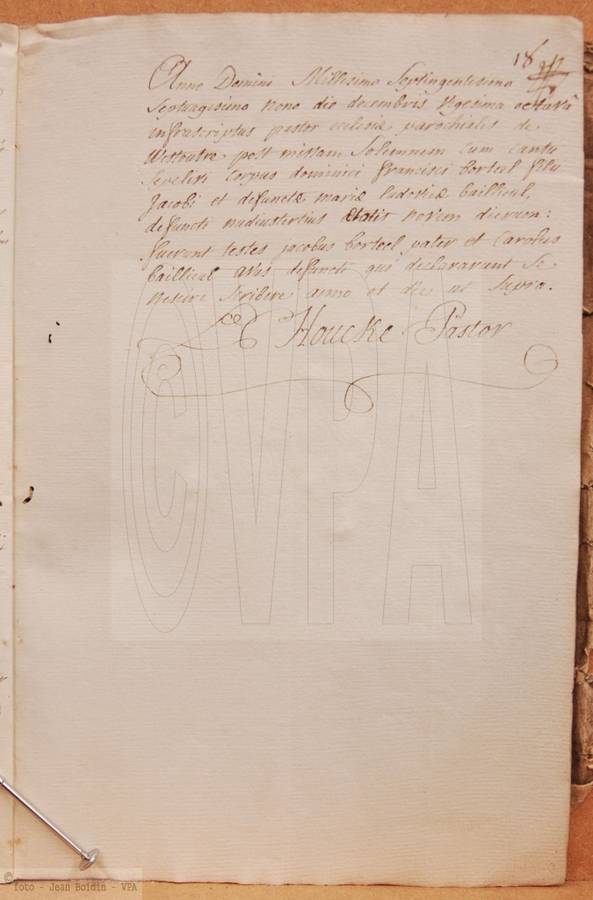 18
Anno Domini Millesimo Septingentesimo
Septuagesimo nono die decembris vigesima octava
infrascriptus pastor ecclesiæ parochialis de
Westoutre post missam Solemnem cum cantu
sepelivi corpus dominici francisci borteel filii
Jacobi et defunctæ mariæ ludovicæ baillieul,
defuncti nudiustertius ætatis novem dierum:
fuerunt testes jacobus borteel pater et Carolus
baillieul avus defuncti qui declararunt se
nescire scribere anno et die ut supra.
Houcke Pastor
©VPA
© foto - Jean Boidin - VPA